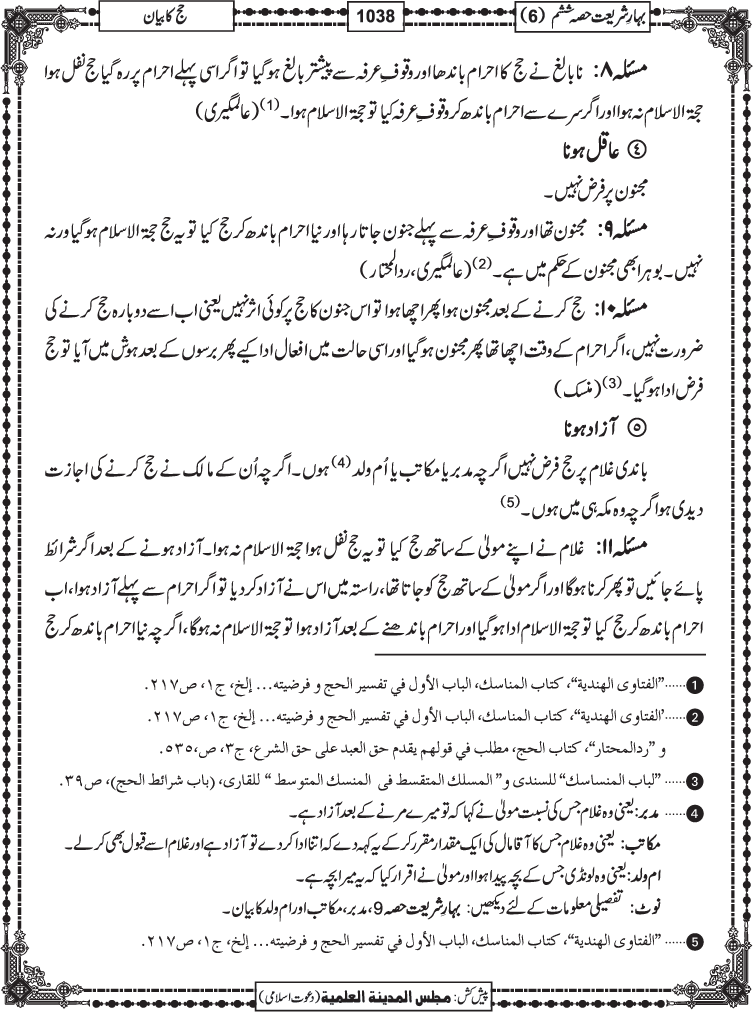 بہارِ شریعت حصہ ششم (6)
1038
حج کا بیان
مسئلہ ۸: نابالغ نے حج کا احرام باندھا اور وقوفِ عرفہ سے پیشتر بالغ ہوگیا تو اگر اسی پہلے احرام پر رہ گیا حج نفل ہوا
حجۃ الاسلام نہ ہوا اور اگر سرے سے احرام باندھ کر وقوفِ عرفہ کیا تو حجۃ الاسلام ہوا۔ (1) (عالمگیری)
④ عاقل ہونا
مجنون پر فرض نہیں۔
مسئلہ ۹: مجنون تھا اور وقوفِ عرفہ سے پہلے جنون جاتا رہا اور نیا احرام باندھ کر حج کیا تو یہ حج حجۃ الاسلام ہوگیا ورنہ
نہیں۔ بوہرا بھی مجنون کے حکم میں ہے۔ (2) (عالمگیری، ردالمحتار)
مسئلہ ۱۰: حج کرنے کے بعد مجنون ہوا پھر اچھا ہوا تو اس جنون کا حج پر کوئی اثر نہیں یعنی اب اسے دوبارہ حج کرنے کی
ضرورت نہیں، اگر احرام کے وقت اچھا تھا پھر مجنون ہوگیا اور اسی حالت میں افعال ادا کیے پھر برسوں کے بعد ہوش میں آیا تو حج
فرض ادا ہوگیا۔ (3) (منسک)
⑤ آزاد ہونا
باندی غلام پر حج فرض نہیں اگرچہ مدبر یا مکاتب یا اُم ولد (4) ہوں۔ اگرچہ اُن کے مالک نے حج کرنے کی اجازت
دیدی ہو اگرچہ وہ مکہ ہی میں ہوں۔ (5)
مسئلہ ۱۱: غلام نے اپنے مولیٰ کے ساتھ حج کیا تو یہ حج نفل ہوا حجۃ الاسلام نہ ہوا۔ آزاد ہونے کے بعد اگر شرائط
پائے جائیں تو پھر کرنا ہوگا اور اگر مولیٰ کے ساتھ حج کو جاتا تھا، راستہ میں اس نے آزاد کر دیا تو اگر احرام سے پہلے آزاد ہوا، اب
احرام باندھ کر حج کیا تو حجۃ الاسلام ادا ہوگیا اور احرام باندھنے کے بعد آزاد ہوا تو حجۃ الاسلام نہ ہوگا، اگرچہ نیا احرام باندھ کر حج
1 ......"الفتاوى الهندية"، كتاب المناسك، الباب الأول في تفسير الحج و فرضيته... إلخ، ج۱، ص۲۱۷.
2 ......'الفتاوى الهندية"، كتاب المناسك، الباب الأول في تفسير الحج و فرضيته... إلخ، ج۱، ص۲۱۷.
و "ردالمحتار"، كتاب الحج، مطلب في قولهم يقدم حق العبد على حق الشرع، ج۳، ص،۵۳۵.
3 ...... "لباب المنساسك" للسندى و "المسلك المتقسط فى المنسك المتوسط " للقارى، (باب شرائط الحج)، ص۳۹.
4 ...... مدبر: یعنی وہ غلام جس کی نسبت مولیٰ نے کہا کہ تو میرے مرنے کے بعد آزاد ہے۔
مکاتب: یعنی وہ غلام جس کا آقا مال کی ایک مقدار مقرر کرکے یہ کہہ دے کہ اتنا ادا کردے تو آزاد ہے اور غلام اسے قبول بھی کرلے۔
ام ولد: یعنی وہ لونڈی جس کے بچہ پیدا ہوا اور مولیٰ نے اقرار کیا کہ یہ میرا بچہ ہے۔
نوٹ: تفصیلی معلومات کے لئے دیکھیں: بہارِ شریعت حصہ 9، مدبر، مکاتب اور ام ولد کا بیان۔
5 ...... "الفتاوى الهندية"، كتاب المناسك، الباب الأول في تفسير الحج و فرضيته... إلخ، ج۱، ص۲۱۷.
پیش کش: مجلس المدینۃ العلمیۃ (دعوتِ اسلامی)